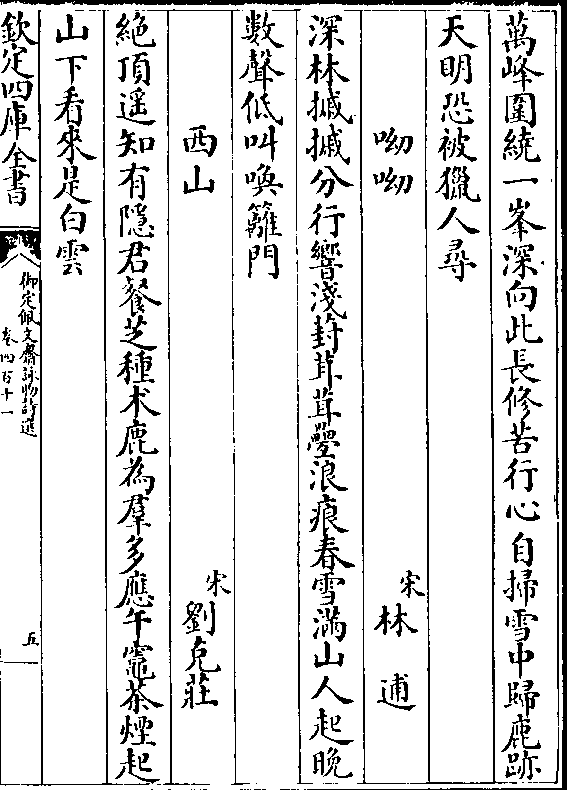 萬峰圍繞一峯深向此長修苦行心自掃雪中歸鹿跡
天明恐被獵人尋
呦呦
宋林逋
深林摵摵分行響淺葑茸茸疊浪痕春雪滿山人起晚
数聲低叫喚籬門
西山
宋劉克莊
絕頂遥知有隠君餐芝種术鹿為羣多應午竈茶煙起
山下看來是白雲
欽定四庫全書
御定佩文齋詠物詩選
卷四百十一
五